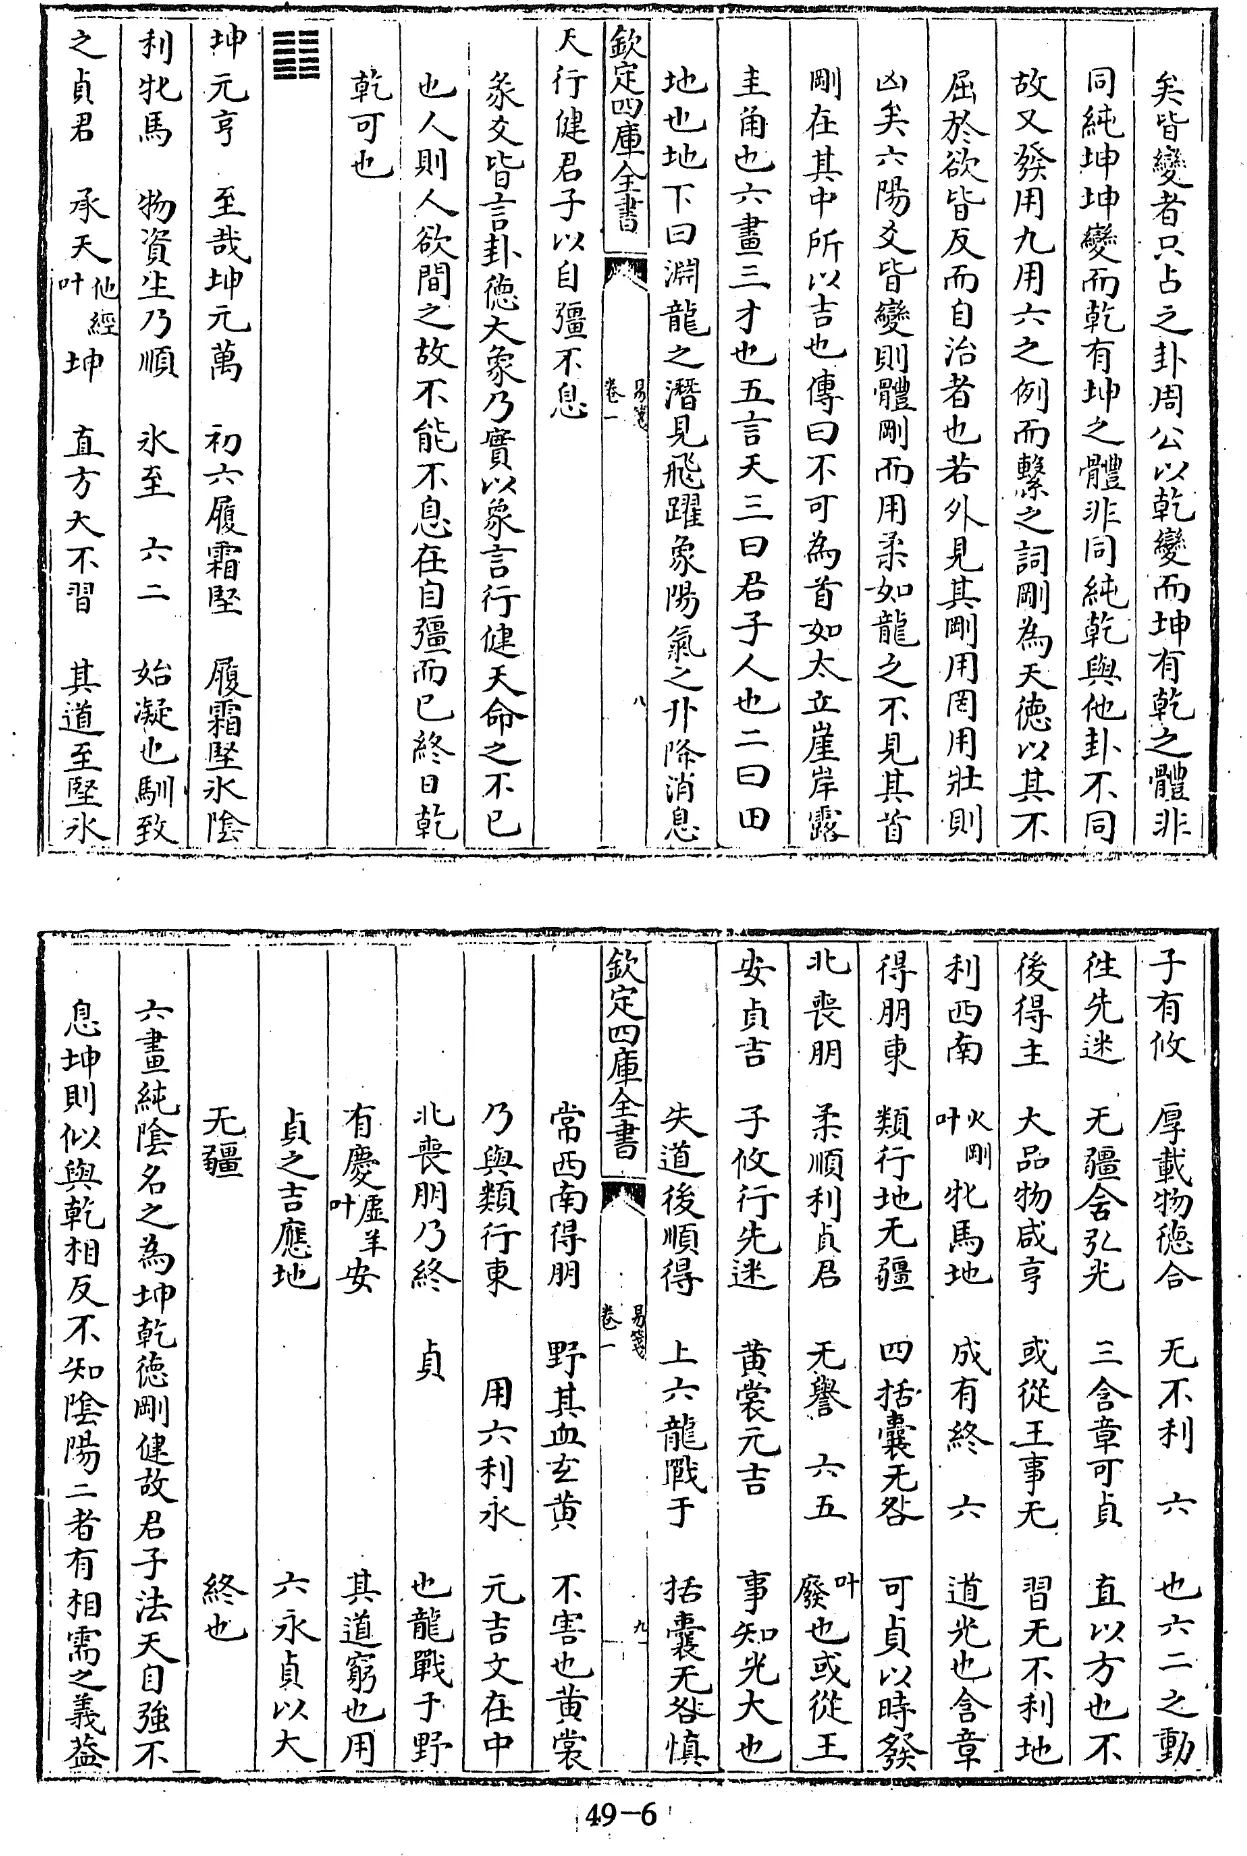 矣皆變者只占之卦周公以乾變而坤有乾之體非
同純坤坤變而乾有坤之體非同純乾與他卦不同
故又發用九用六之例而繫之詞剛為天德以其不
屈於欲皆反而自治者也若外見其剛用罔用壯則
凶矣六陽爻皆變則體剛而用柔如龍之不見其首
剛在其中所以吉也傳曰不可為首如太立崖岸露
圭角也六畫三才也五言天三曰君子人也二曰田
地也地下曰淵龍之潛見飛躍象陽氣之升降消息
欽定四庫全書
易箋
卷一
八
天行健君子以自彊不息
彖爻皆言卦德大象乃實以象言行健天命之不已
也人則人欲間之故不能不息在自彊而已終日乾
乾可也
䷁
坤元亨 至哉坤元萬 初六履霜堅 履霜堅氷陰
利牝馬 物資生乃順 氷至 六二 始凝也馴致
之貞君 承天叶他經坤 直方大不習 其道至堅氷
子有攸 厚載物德合 无不利 六 也六二之動
往先迷 无疆含弘光 三含章可貞 直以方也不
後得主 大品物咸亨 或從王事无 習无不利地
利西南 叶火剛牝馬地 成有終 六 道光也含章
得朋東 類行地无疆 四括囊无咎 可貞以時發
北喪朋 柔順利貞君 无譽 六五 叶廢也或從王
安貞吉 子攸行先迷 黃裳元吉 事知光大也
失道後順得 上六龍戰于 括囊无咎慎
欽定四庫全書
易箋
卷一
九
常西南得朋 野其血玄黃 不害也黃裳
乃與類行東 用六利永 元吉文在中
北喪朋乃終 貞 也龍戰于野
有慶叶虛羊安 其道窮也用
貞之吉應地 六永貞以大
无疆 終也
六畫純陰名之為坤乾德剛健故君子法天自強不
息坤則似與乾相反不知陰陽二者有相需之義蓋
49-6